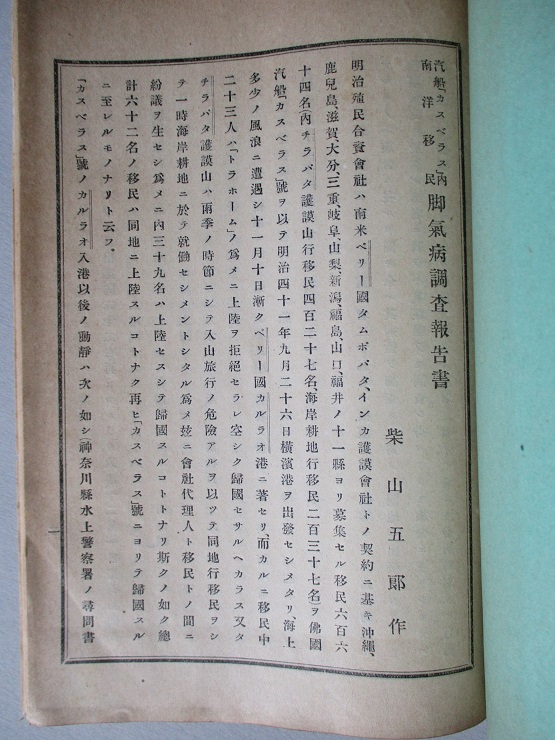 汽船「カスベラス」內
南洋移民
脚氣病調査報告書
柴山五郞作
明治殖民合資會社ハ南米ペリー國タムボパタ、インカ護謨會社トノ契約ニ基キ沖繩、
鹿兒島、滋賀大分、三重、岐阜、山梨、新潟、福島、山口、福井ノ十一縣ヨリ募集セル移民六百六
十四名(內チラパタ護謨山行移民四百二十七名、海岸耕地行移民二百三十七名)ヲ佛國
汽船「カスベラス」號ヲ以テ明治四十一年九月二十六日橫濱港ヲ出發セシメタリ、海上
多少ノ風浪ニ遭遇シ十一月十日漸クペリー國カルラオ港ニ著セリ、而カルニ移民中
二十三人ハ「トラホーム」ノ爲メニ上陸ヲ拒絕セラレ空シク歸國セサルヘカラス又タ
チラパタ護謨山ハ雨季ノ時節ニシテ入山旅行ノ危險アルヲ以ツテ同地行移民ヲシ
テ一時海岸耕地ニ於テ就働セシメントシタル爲メ玆ニ會社代理人ト移民トノ間ニ
紛議ヲ生セシ爲メニ內三十九名ハ上陸セスシテ歸國スルコトトナリ斯クノ如ク總
計六十二名ノ移民ハ同地ニ上陸スルコトナク再ヒ「カスベラス」號ニヨリテ歸國スル
ニ至レルモノナリト云フ、
「カスベラス」號ノカルラオ入港以後ノ動靜ハ次ノ如シ(神奈川縣水上警察署ノ尋問書
一